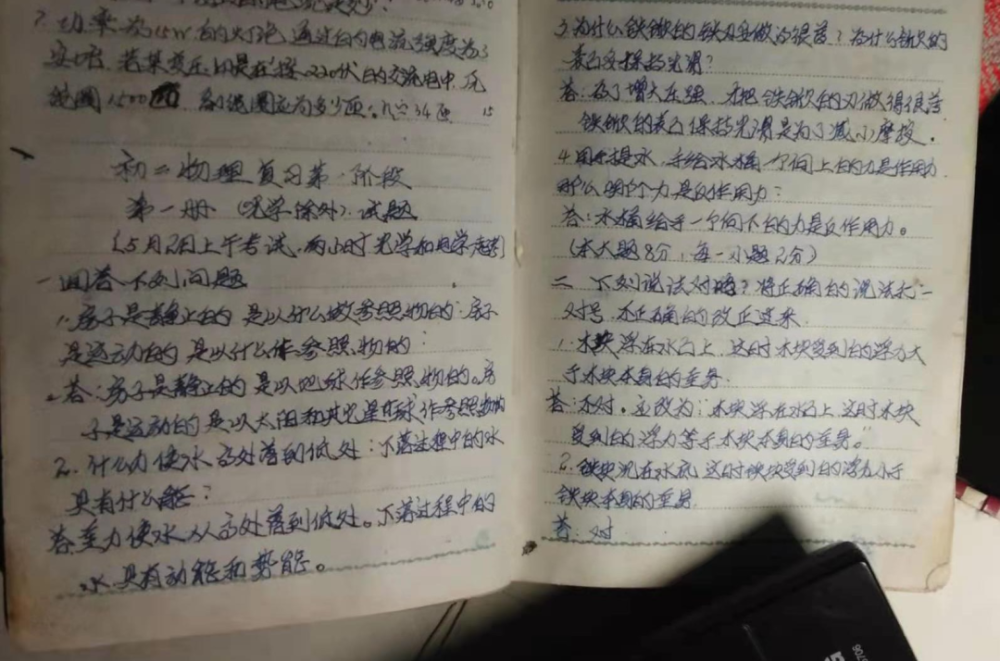 7. 功率为15W的灯泡 通过的电流强度为3
安培. 若某变压器是在接220伏的交流电中, 原
线圈1500 副线圈应为多少匝. n₂=34匝
初二物理复习第一阶段
第一册 (光学除外). 试题
(5月2日上午考试, 两小时 光学和电学
一 回答下列问题
1. 房子是静止的 是以什么做参照物的: 房子
是运动的 是以什么作参照物的:
答: 房子是静止的 是以地球作参照物的。房
子是运动的是以太阳和其它星球作参照物的
2. 什么力使水高处落到低处: 下落过程中的水
具有什么能?
答重力使水从高处落到低处。下落过程中的
水具有动能和势能。
3. 为什么铁锹的铁刃要做的很薄? 为什么锹的
表面要保持光滑?
答: 为了增大压强. 才把铁锹的刃做得很薄
铁锹的表面保持光滑是为了减小摩擦.
4. 用手提水. 手给水桶一个向上的力是作用力
那么哪个力是反作用力:
答: 水桶给手一个向下的力是反作用力。
(本大题8分, 每一小题2分)
二 下列说法对吗? 将正确的说法打一
对号, 不正确的改正过来
1. 木块浮在水面上. 这时木块受到的浮力大
于木块本身的重量.
答: 不对. 应改为: 木块浮在水面上 这时木块
受到的浮力等于木块本身的重量。"
2. 铁块沉在水底 这时铁块受到的浮力小于
铁块本身的重量
答: 对
5706